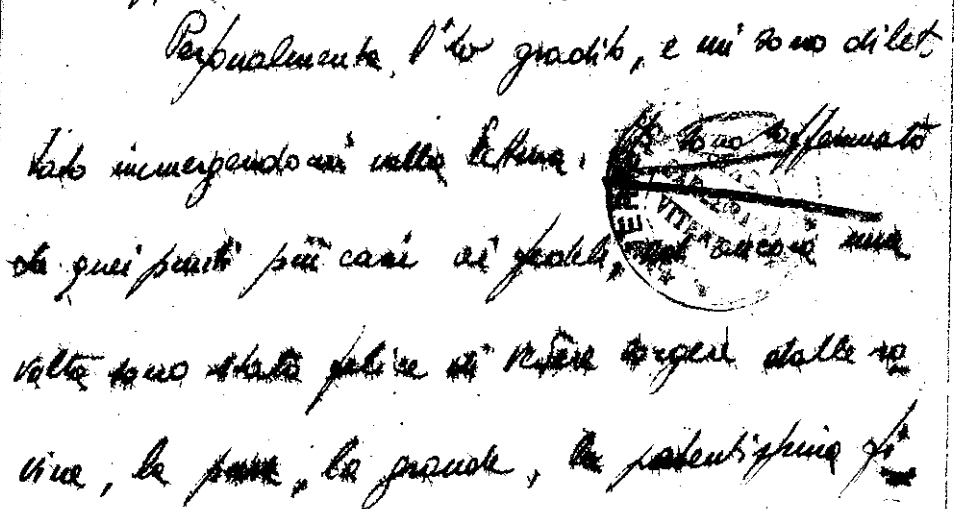 Personalmente, l'ho gradito, e mi sono dilet
tato immergendomi nella lettura. sono soffermato
quei punti più cari ai fedeli, ancora una
volta sono stato felice di vedere sorgere dalle ro
vine, la pura, la grande, la potentissima fi
VITER